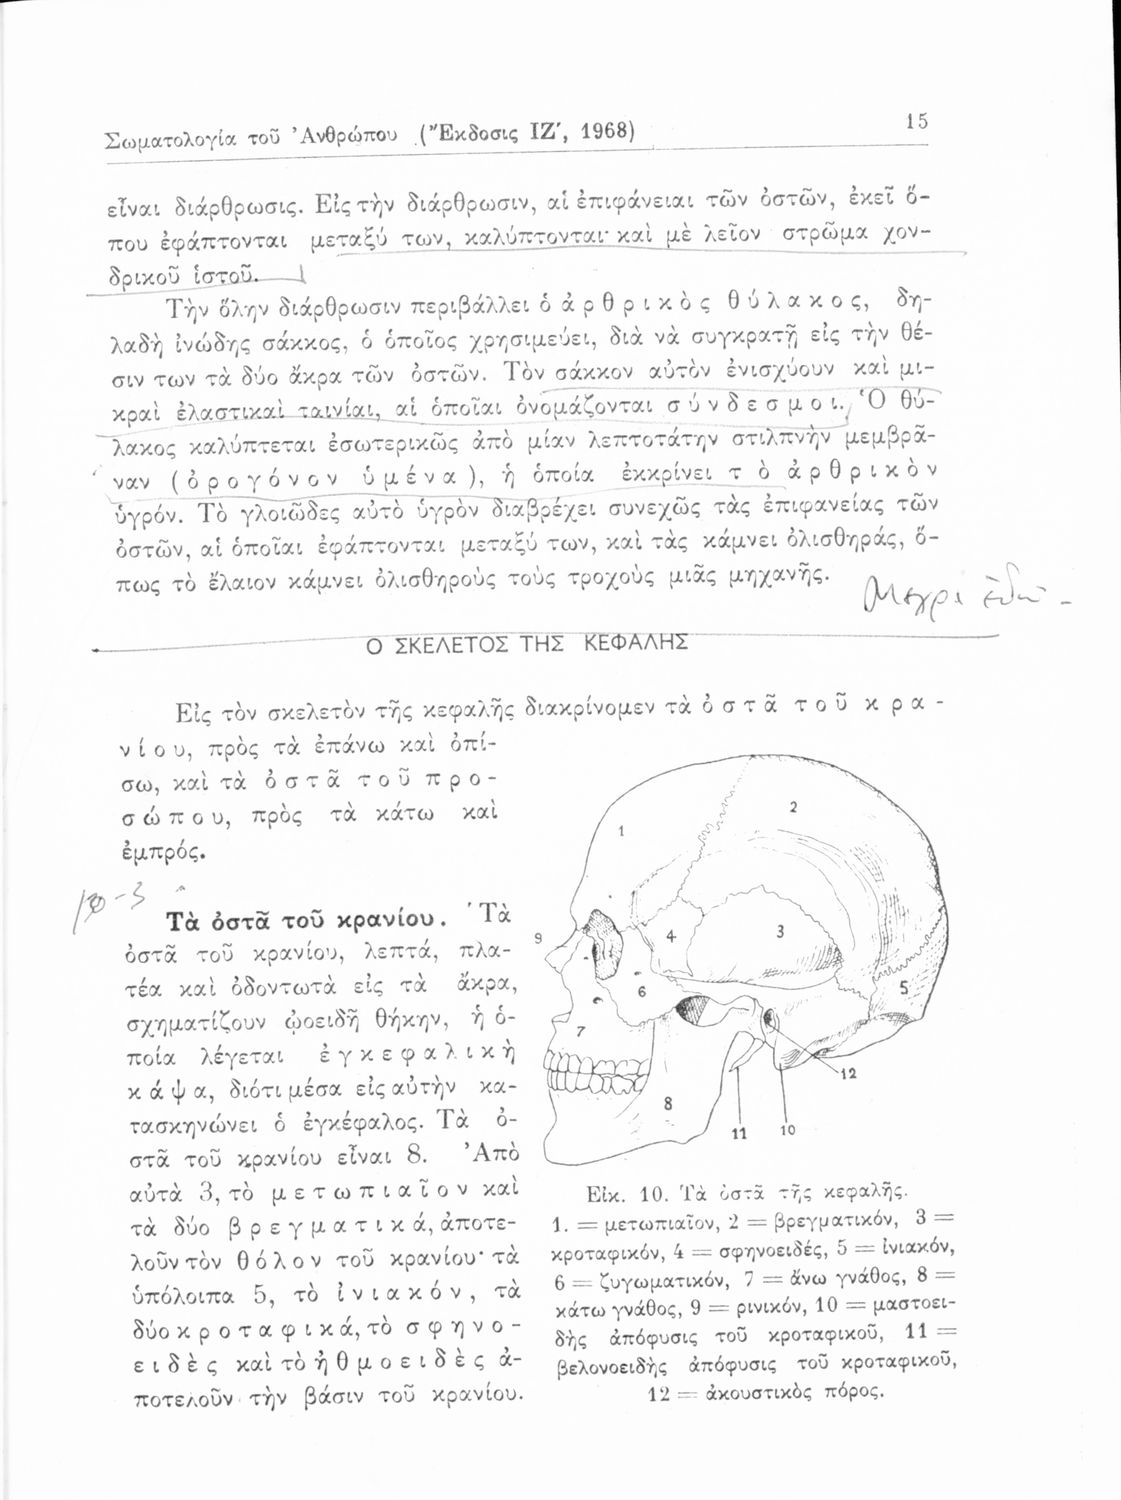 Σωματολογία τοῦ Ἀνθρώπου (Ἔκδοσις ΙΖ', 1968)
15
εἶναι διάρθρωσις. Εἰς τὴν διάρθρωσιν, αἱ ἐπιφάνειαι τῶν ὀστῶν, ἐκεῖ ὅ-
που ἐφάπτονται μεταξύ των, καλύπτονται· καὶ μὲ λεῖον στρῶμα χον-
δρικοῦ ἱστοῦ.
Τὴν ὅλην διάρθρωσιν περιβάλλει ὁ ἀρθρικὸς θύλακος, δη-
λαδὴ ἰνώδης σάκκος, ὁ ὁποῖος χρησιμεύει, διὰ νὰ συγκρατῇ εἰς τὴν θέ-
σιν των τὰ δύο ἄκρα τῶν ὀστῶν. Τὸν σάκκον αὐτὸν ἐνισχύουν καὶ μι-
κραὶ ἐλαστικαὶ ταινίαι, αἱ ὁποῖαι ὀνομάζονται σύνδεσμοι. Ὁ θύ-
λακος καλύπτεται ἐσωτερικῶς ἀπὸ μίαν λεπτοτάτην στιλπνὴν μεμβρᾶ-
ναν (ὀρογόνον ὑμένα), ἡ ὁποία ἐκκρίνει τὸ ἀρθρικὸν
ὑγρόν. Τὸ γλοιῶδες αὐτὸ ὑγρὸν διαβρέχει συνεχῶς τὰς ἐπιφανείας τῶν
ὀστῶν, αἱ ὁποῖαι ἐφάπτονται μεταξύ των, καὶ τὰς κάμνει ὀλισθηράς, ὅ-
πως τὸ ἔλαιον κάμνει ὀλισθηροὺς τοὺς τροχοὺς μιᾶς μηχανῆς.
Μεχρι ἐδῶ -
Ο ΣΚΕΛΕΤΟΣ ΤΗΣ ΚΕΦΑΛΗΣ
Εἰς τὸν σκελετὸν τῆς κεφαλῆς διακρίνομεν τὰ ὀστᾶ τοῦ κρα-
νίου, πρὸς τὰ ἐπάνω καὶ ὀπί-
σω, καὶ τὰ ὀστᾶ τοῦ προ-
σώπου, πρὸς τὰ κάτω καὶ
ἐμπρός.
Τὰ ὀστᾶ τοῦ κρανίου. Τὰ
ὀστᾶ τοῦ κρανίου, λεπτά, πλα-
τέα καὶ ὀδοντωτὰ εἰς τὰ ἄκρα,
σχηματίζουν ᾠοειδῆ θήκην, ἡ ὁ-
ποία λέγεται ἐγκεφαλικὴ
κάψα, διότι μέσα εἰς αὐτὴν κα-
τασκηνώνει ὁ ἐγκέφαλος. Τὰ ὀ-
στᾶ τοῦ κρανίου εἶναι 8. Ἀπὸ
αὐτὰ 3, τὸ μετωπιαῖον καὶ
τὰ δύο βρεγματικά, ἀποτε-
λοῦν τὸν θόλον τοῦ κρανίου· τὰ
ὑπόλοιπα 5, τὸ ἰνιακόν, τὰ
δύο κροταφικά, τὸ σφηνο-
ειδὲς καὶ τὸ ἠθμοειδὲς ἀ-
ποτελοῦν τὴν βάσιν τοῦ κρανίου.
1
2
3
4
5
6
7
8
9
10
11
12
Εἰκ. 10. Τὰ ὀστᾶ τῆς κεφαλῆς.
1. = μετωπιαῖον, 2 = βρεγματικόν, 3 =
κροταφικόν, 4 = σφηνοειδές, 5 = ἰνιακόν,
6 = ζυγωματικόν, 7 = ἄνω γνάθος, 8 =
κάτω γνάθος, 9 = ρινικόν, 10 = μαστοει-
δὴς ἀπόφυσις τοῦ κροταφικοῦ, 11 =
βελονοειδὴς ἀπόφυσις τοῦ κροταφικοῦ,
12 = ἀκουστικὸς πόρος.